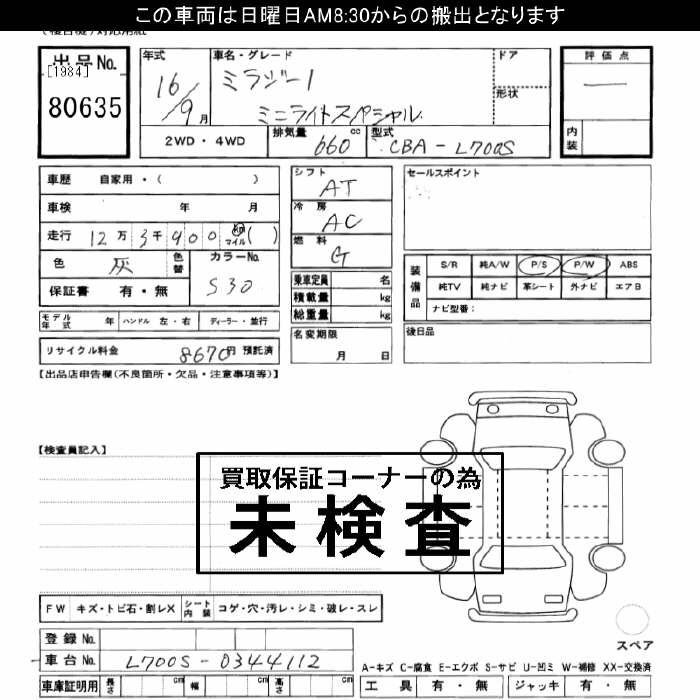 この車両は日曜日AM8:30からの搬出となります
出品No.
[1984]
80635
年式
16/9月
車名・グレード
ミラジーノ
ミニライトスペシャル
ドア
形状
評価点
内装
2WD・4WD
排気量 660 cc
型式 CBA-L700S
車歴 自家用・( )
車検 年 月
走行 12万3千900 km マイル ( )
色 灰 色替
カラーNo. S30
保証書 有・無
シフト
AT
冷房
AC
燃料
G
乗車定員 名
積載量 kg
総重量 kg
セールスポイント
装備品
S/R 純A/W P/S P/W ABS
純TV 純ナビ 革シート 外ナビ エアB
ナビ型番:
モデル年式 年 ハンドル 左・右 ディーラー・並行
名変期限
月 日
後日品
リサイクル料金 8670円 預託済
【出品店申告欄(不良箇所・欠品・注意事項等)】
【検査員記入】
買取保証コーナーの為
未検査
FW キズ・トビ石・割レX シート内装 コゲ・穴・汚レ・シミ・破レ・スレ
登録No.
車台No. L700S-0344112
車庫証明用 長さ cm 幅 cm 高さ cm
スペア
A-キズ C-腐食 E-エクボ S-サビ U-凹ミ W-補修 XX-交換済
工具 有・無 ジャッキ 有・無